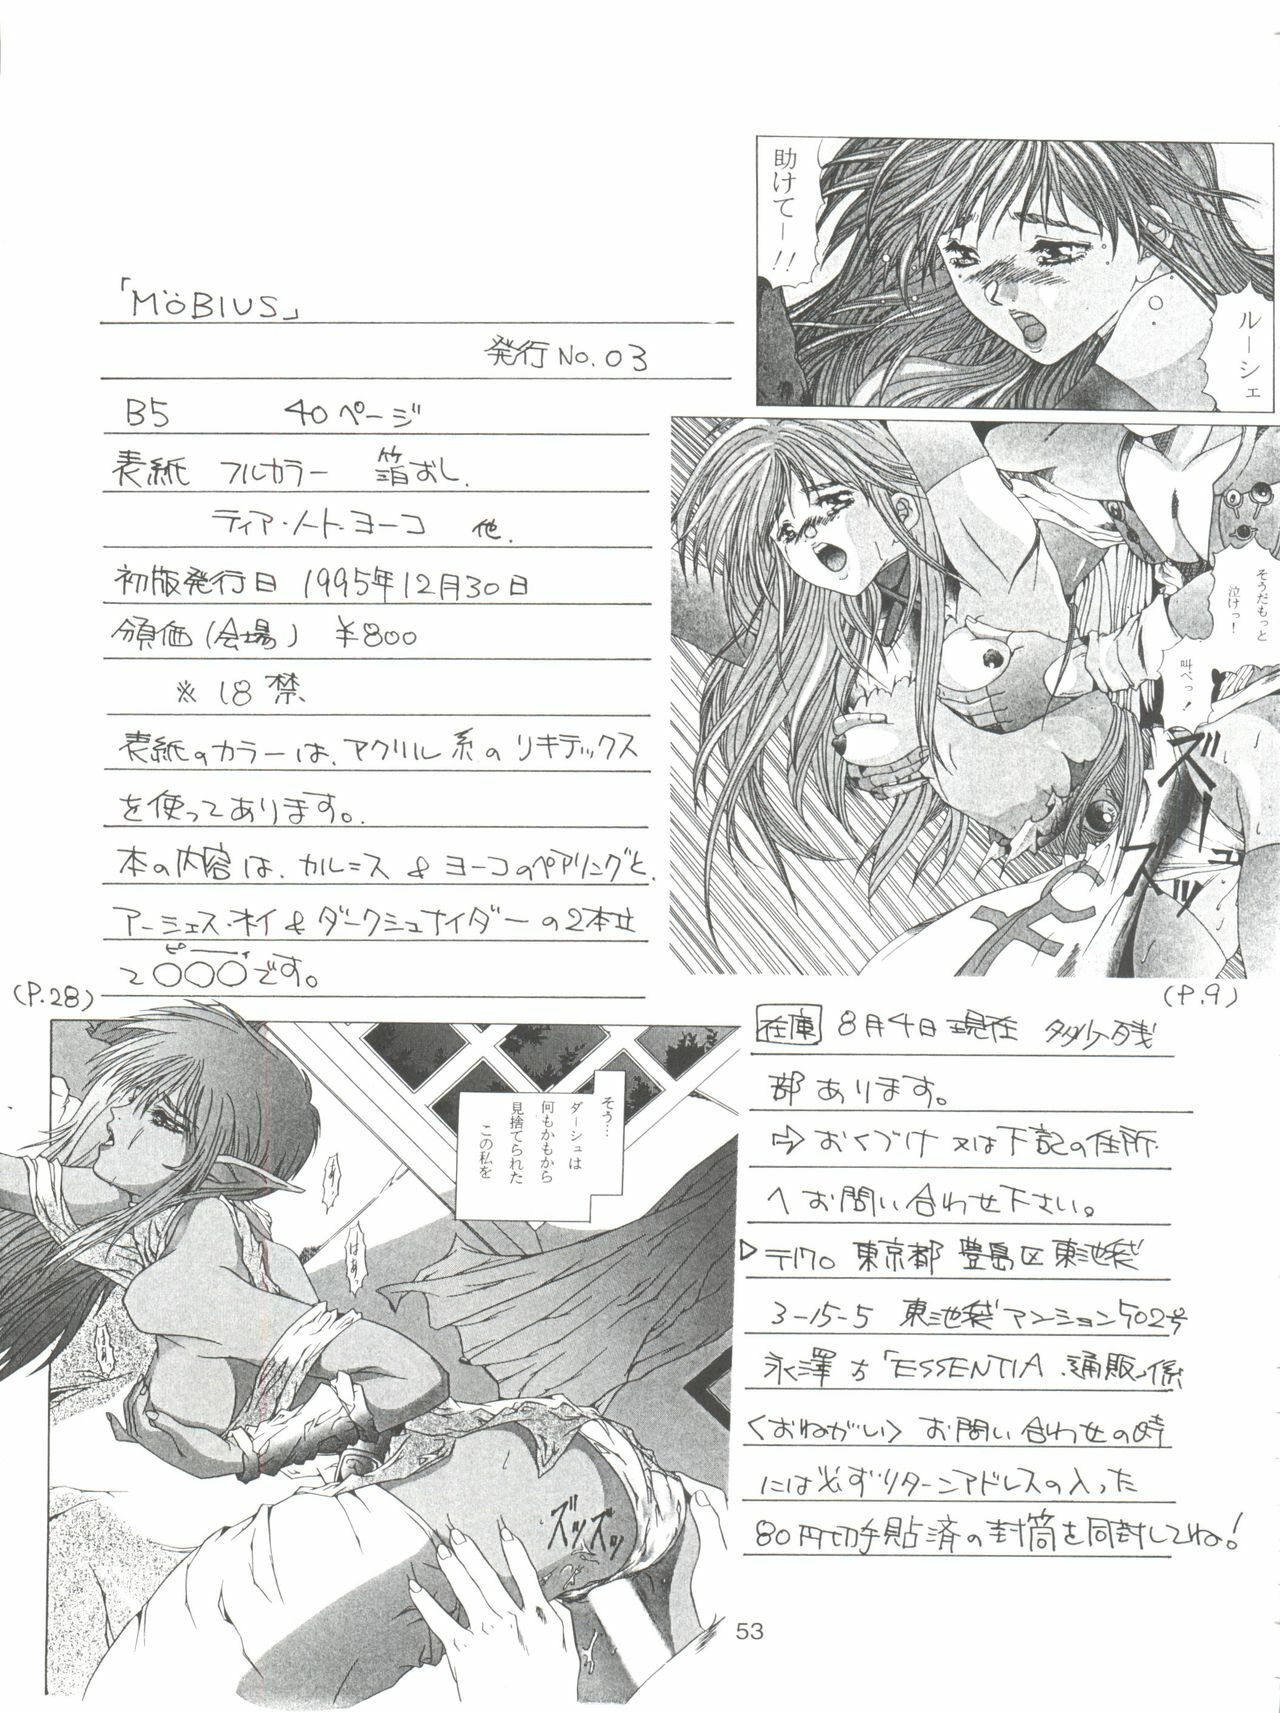 「MÖBIUS」
発行No.03
B5 40ページ
表紙 フルカラー 箔おし.
ティア・ノート・ヨーコ 他.
初版発行日 1995年12月30日
頒価(会場) ¥800
※18禁
表紙のカラーは、アクリル系のリキテックス
を使ってあります。
本の内容は、カル=ス & ヨーコのペアリングと、
アーシェス・ネイ&ダークシュナイダーの2本立
て〇〇〇です。
ピー
(P.28)
(P.9)
そう…
ダーシュは
何もかもから
見捨てられた
この私を
在庫 8月4日現在 多少残
部あります。
⇨おくづけ又は下記の住所
へお問い合わせ下さい。
▷〒170 東京都豊島区東池袋
3-15-5 東池袋マンション502号
永澤方「ESSENTIA 通販」係
〈おねがい〉お問い合わせの時
には必ずリターンアドレスの入った
80円切手貼済の封筒を同封してね!
53